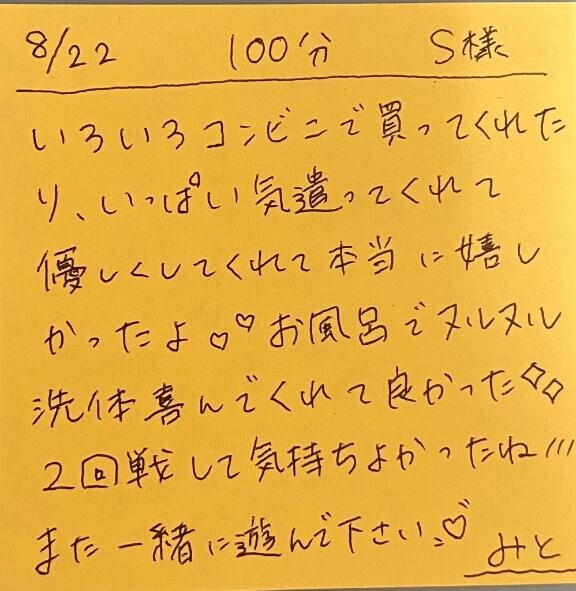 8/22 100分 S様
いろいろコンビニで買ってくれた
り、いっぱい気遣ってくれて
優しくしてくれて本当に嬉し
かったよ♡♡お風呂でヌルヌル
洗体喜んでくれて良かった◇◇
2回戦して気持ちよかったね!!!
また一緒に遊んで下さい♡
みと